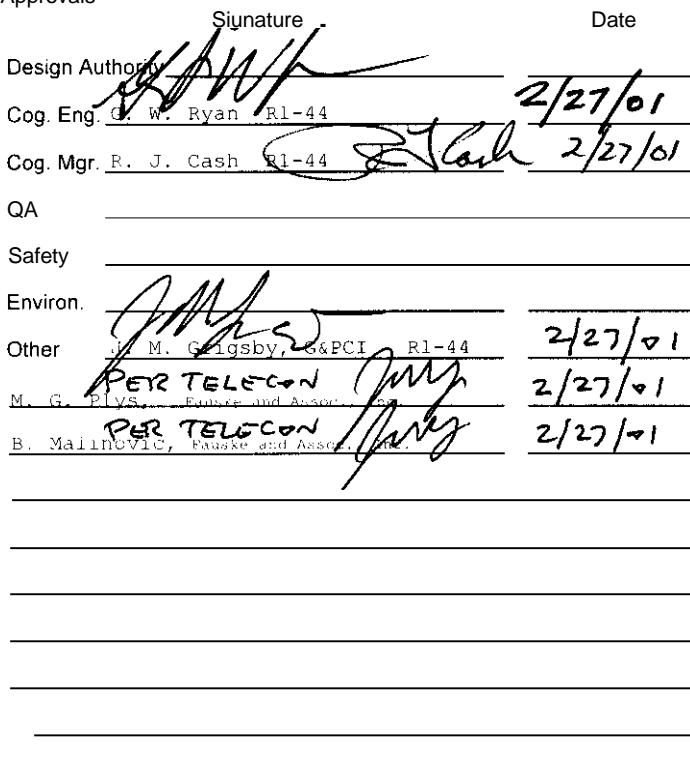 Approvals
Signature Date
Design Authority
Cog. Eng. G. W. Ryan R1-44 2/27/01
Cog. Mgr. R. J. Cash R1-44 R J Cash 2/27/01
QA
Safety
Environ.
Other J. M. Grigsby, G&PCI R1-44 2/27/01
PER TELECON
M. G. Plys, Fauske and Assoc., Inc. 2/27/01
PER TELECON
B. Malinovic, Fauske and Assoc., Inc. 2/27/01